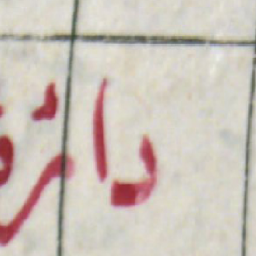 دائرة